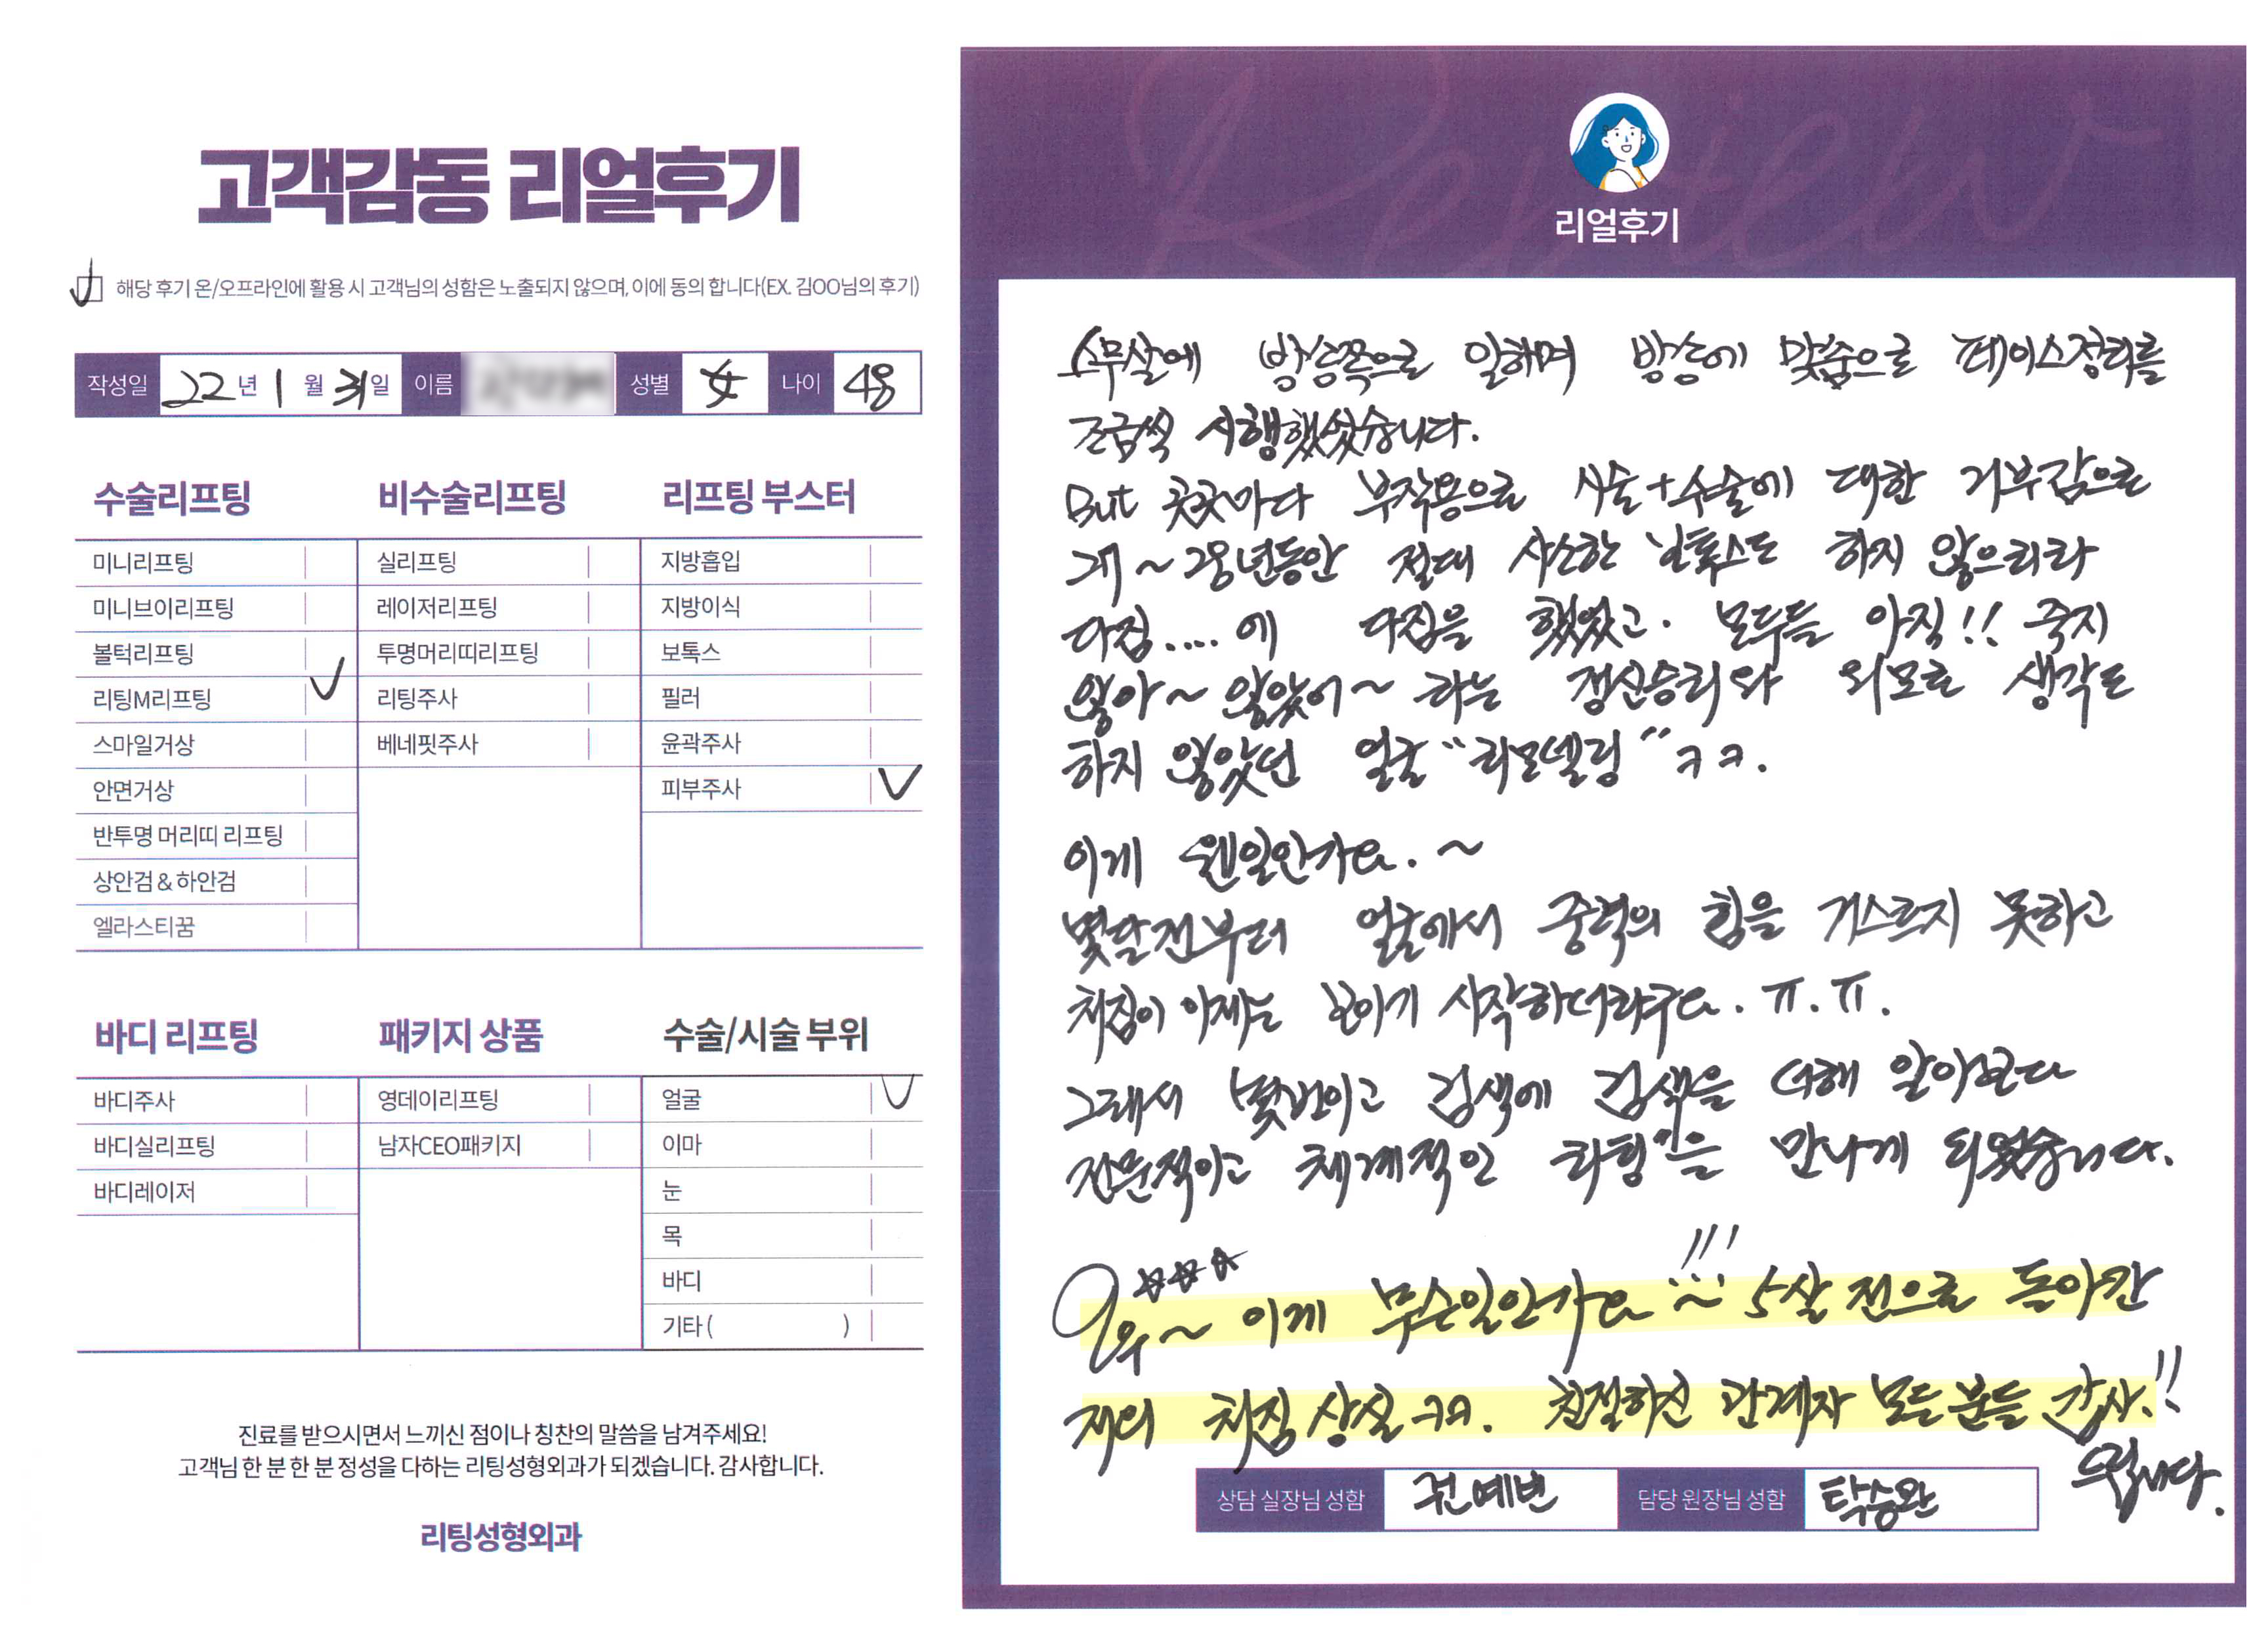 고객감동 리얼후기
해당 후기 온/오프라인에 활용 시 고객님의 성함은 노출되지 않으며, 이에 동의 합니다(EX. 김OO님의 후기)
작성일 22년 1월 31일 이름 성별 女 나이 48
수술리프팅 비수술리프팅 리프팅 부스터
미니리프팅 실리프팅 지방흡입
미니브이리프팅 레이저리프팅 지방이식
볼턱리프팅 투명머리띠리프팅 보톡스
리팅M리프팅 리팅주사 필러
스마일거상 베네핏주사 윤곽주사
안면거상 피부주사
반투명 머리띠 리프팅
상안검 & 하안검
엘라스티꿈
바디 리프팅 패키지 상품 수술/시술 부위
바디주사 영데이리프팅 얼굴
바디실리프팅 남자CEO패키지 이마
바디레이저 눈
목
바디
기타 ( )
진료를 받으시면서 느끼신 점이나 칭찬의 말씀을 남겨주세요!
고객님 한 분 한 분 정성을 다하는 리팅성형외과가 되겠습니다. 감사합니다.
리팅성형외과
Review
리얼후기
스무살에 방송쪽으로 일하며 방송에 맞춤으로 페이스정리를
조금씩 시행했었습니다.
But 곳곳마다 부작용으로 시술+수술에 대한 거부감으로
20년동안 절대 사소한 보톡스도 하지 않으리라
다짐....에 다짐을 했었고. 모두들 아직!! 죽지
않아~ 않았어~ 라는 정신승리와 외모로 생각도
하지 않았던 얼굴 "리모델링" ㅋㅋ.
이게 웬일인가요.~
몇달전부터 얼굴에서 중력의 힘을 거스르지 못하고
처짐이 이제는 보이기 시작하더라구요. ㅠ.ㅠ.
그래서 몇번이고 검색에 검색을 더해 알아보다
전문적이고 체계적인 리팅을 만나게 되었습니다.
와우~ 이게 무슨일인가요~!!! 5살 전으로 돌아간
저의 처짐 상실 ㅋㅋ. 친절하신 관계자 모든 분들 감사!!
드립니다.
상담 실장님 성함 권예빈 담당 원장님 성함 탁승완